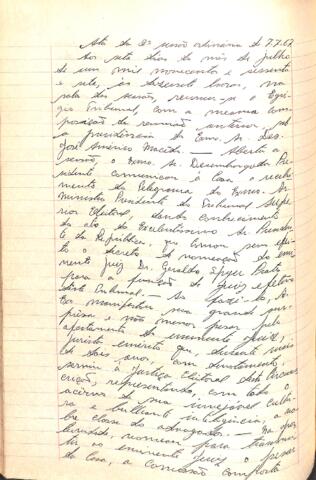 Ata da 2ª sessão ordinária de 7.7.67
Aos sete dias do mês de julho
de um mil novecentos e sessenta
e sete, às dezessete horas, na
sala das sessões, reuniu-se o Egré-
gio Tribunal, com a mesma com-
posição da reunião anterior sob
a presidência do Exmo. Sr. Des.
José Américo Macêdo. – Aberta a
sessão, o Exmo. Sr. Desembargador Pre-
sidente comunicou à Casa o recebi-
mento de telegrama do Exmo. Sr.
Ministro Presidente do Tribunal Supe-
rior Eleitoral, dando conhecimento
do ato do Excelentíssimo Sr. Presiden-
te da República, que tornou sem efei-
to o decreto de nomeação do emi-
nente Juiz Dr. Geraldo Spyer Prates
para a função de Juiz efetivo
deste Tribunal. – Ao fazê-lo, S.
Exa. manifestou sua grande sur-
prêsa e não menor pesar pelo
afastamento do eminente Juiz,
jurista emérito que, durante mais
de dois anos, com devotamento,
serviu à Justiça Eleitoral desta Circuns-
crição, representando, com todo o
acervo de sua invejável cultu-
ra e brilhante inteligência, a no-
bre classe dos advogados. –
nomeou para transmi-
tir ao eminente Juiz o pesar
da Casa, a comissão composta